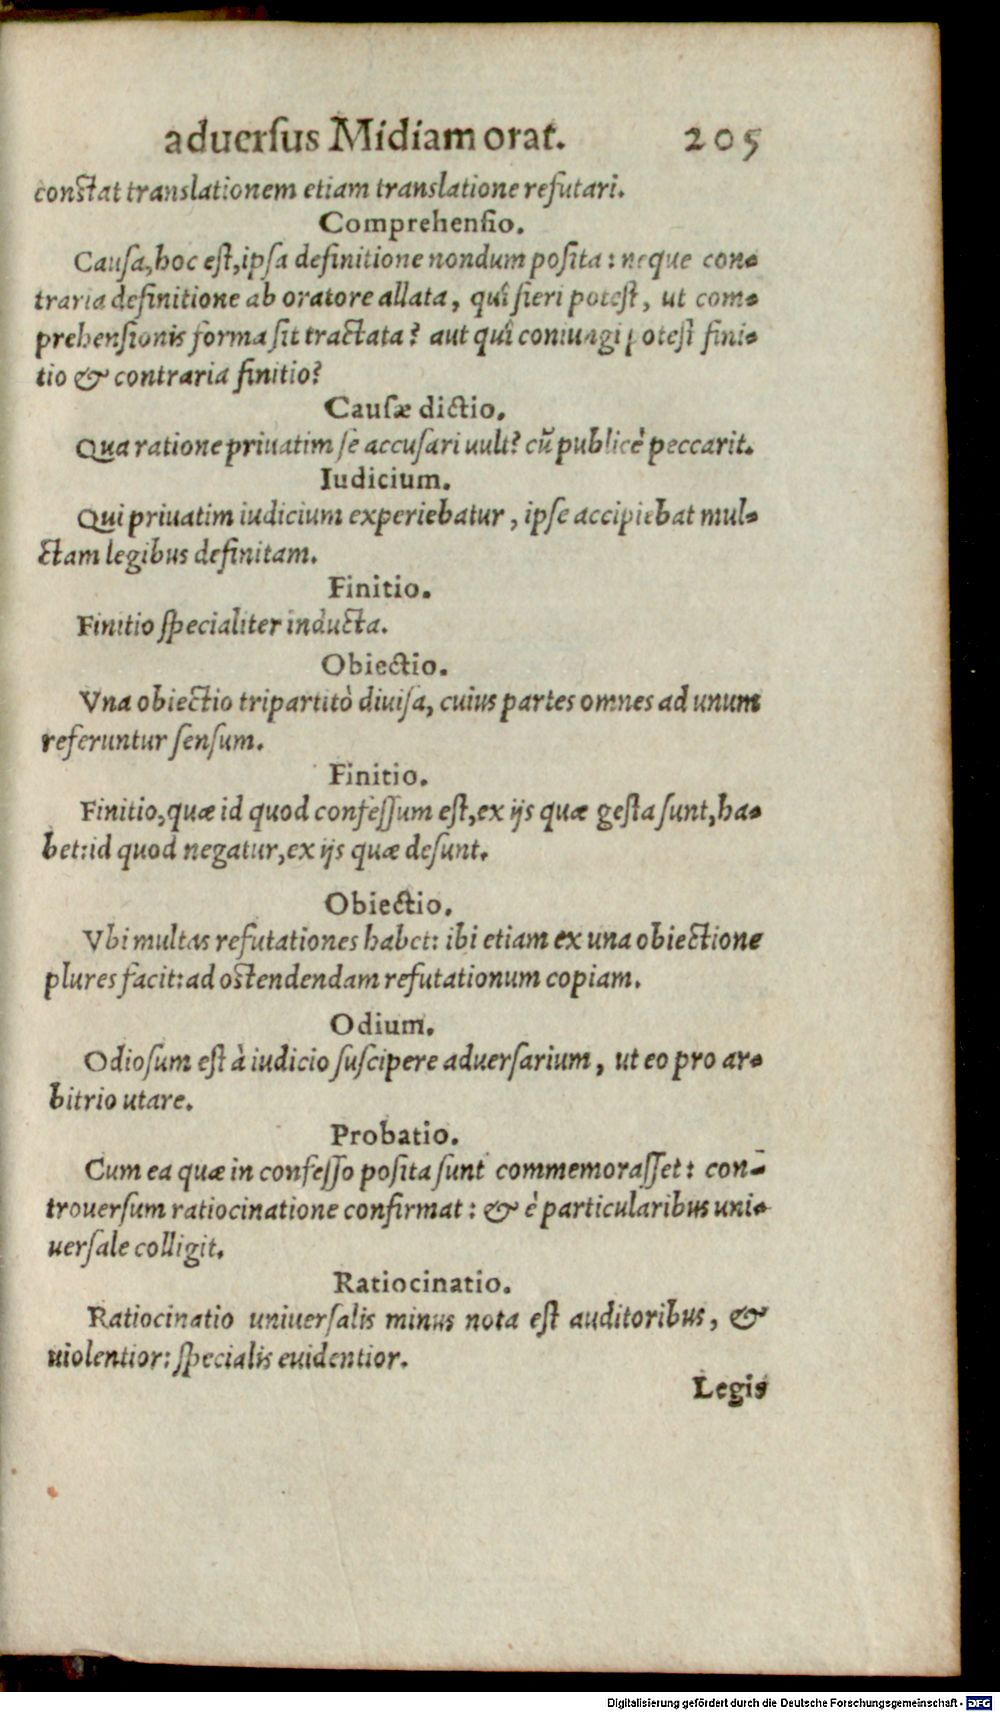 aduersus Midiam orat. 205
constat translationem etiam translatione refutari.
Comprehensio.
Causa, hoc est, ipsa definitione nondum posita: neque con-
traria definitione ab oratore allata, quî fieri potest, ut com-
prehensionis forma sit tractata? aut quî coniungi potest fini-
tio & contraria finitio?
Causæ dictio.
Qua ratione priuatim se accusari uult? cū publicè peccarit.
Iudicium.
Qui priuatim iudicium experiebatur, ipse accipiebat mul-
ctam legibus definitam.
Finitio.
Finitio specialiter inducta.
Obiectio.
Vna obiectio tripartitò diuisa, cuius partes omnes ad unum
referuntur sensum.
Finitio.
Finitio, quæ id quod confessum est, ex ijs quæ gesta sunt, ha-
bet: id quod negatur, ex ijs quæ desunt.
Obiectio.
Vbi multas refutationes habet: ibi etiam ex una obiectione
plures facit: ad ostendendam refutationum copiam.
Odium.
Odiosum est à iudicio suscipere aduersarium, ut eo pro ar-
bitrio utare.
Probatio.
Cum ea quæ in confesso posita sunt commemorasset: con-
trouersum ratiocinatione confirmat: & è particularibus uni-
uersale colligit.
Ratiocinatio.
Ratiocinatio uniuersalis minus nota est auditoribus, &
uiolentior: specialis euidentior.
Legis
Digitalisierung gefördert durch die Deutsche Forschungsgemeinschaft - DFG